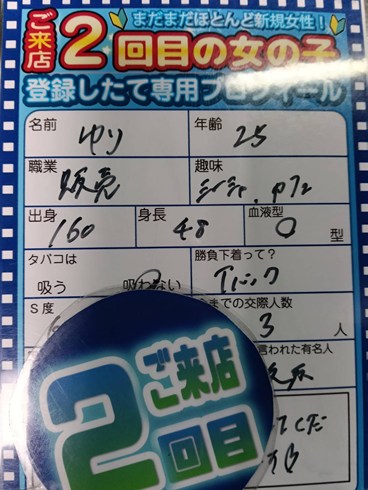 まだまだほとんど新規女性！
ご来店2回目の女の子
登録したて専用プロフィール
名前 ゆり 年齢 25
職業 販売 趣味 シーシャ、
出身 160 身長 48 血液型 O 型
タバコは 吸う 吸わない 勝負下着って？ Tバック
S度 までの交際人数 3 人
言われた有名人
ご来店
2回目